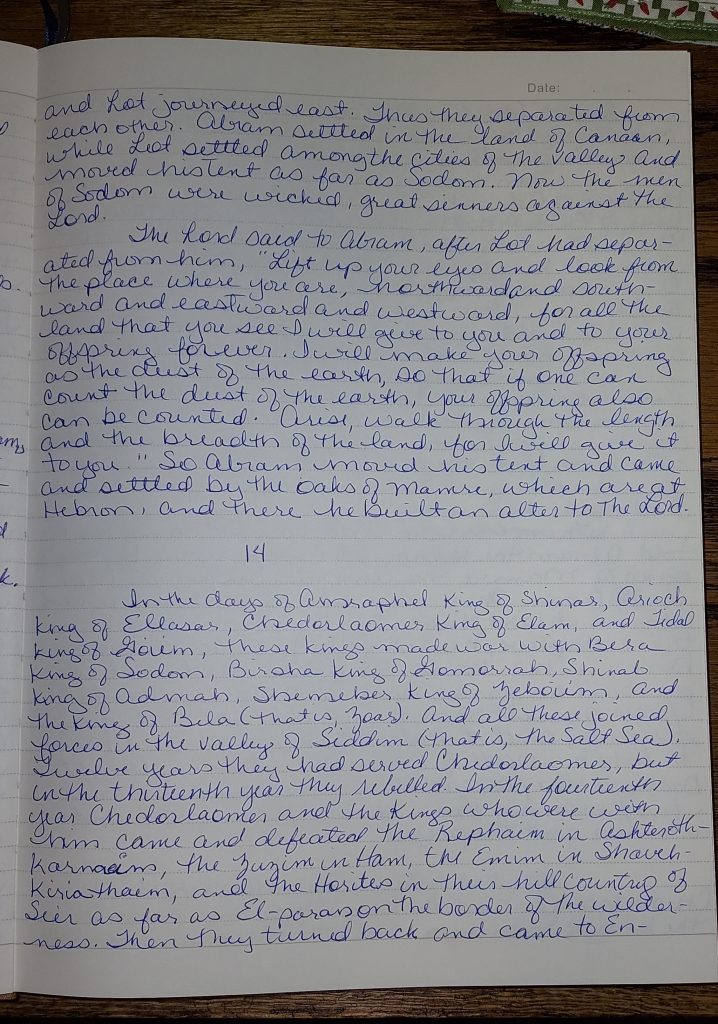 Date:
and Lot journeyed east. Thus they separated from
each other. Abram settled in the land of Canaan,
while Lot settled among the cities of the valley and
moved his tent as far as Sodom. Now the men
of Sodom were wicked, great sinners against the
Lord.
The Lord said to Abram, after Lot had separ-
ated from him, "Lift up your eyes and look from
the place where you are, northward and south-
ward and eastward and westward, for all the
land that you see I will give to you and to your
offspring forever. I will make your offspring
as the dust of the earth, so that if one can
count the dust of the earth, your offspring also
can be counted. Arise, walk through the length
and the breadth of the land, for I will give it
to you." So Abram moved his tent and came
and settled by the oaks of Mamre, which are at
Hebron, and there he built an alter to the Lord.
14
In the days of Amraphel King of Shinar, Arioch
King of Ellasar, Chedorlaomer King of Elam, and Tidal
King of Goiim, these kings made war with Bera
King of Sodom, Birsha King of Gomorrah, Shinab
King of Admah, Shemeber King of Zeboiim, and
the King of Bela (that is, Zoar). And all these joined
forces in the valley of Siddim (that is, the Salt Sea).
Twelve years they had served Chedorlaomer, but
in the thirteenth year they rebelled. In the fourteenth
year Chedorlaomer and the Kings who were with
him came and defeated the Rephaim in Ashteroth-
Karnaim, the Zuzim in Ham, the Emim in Shaveh-
Kiriathaim, and the Horites in their hill country of
Seir as far as El-paran on the border of the wilder-
ness. Then they turned back and came to En-